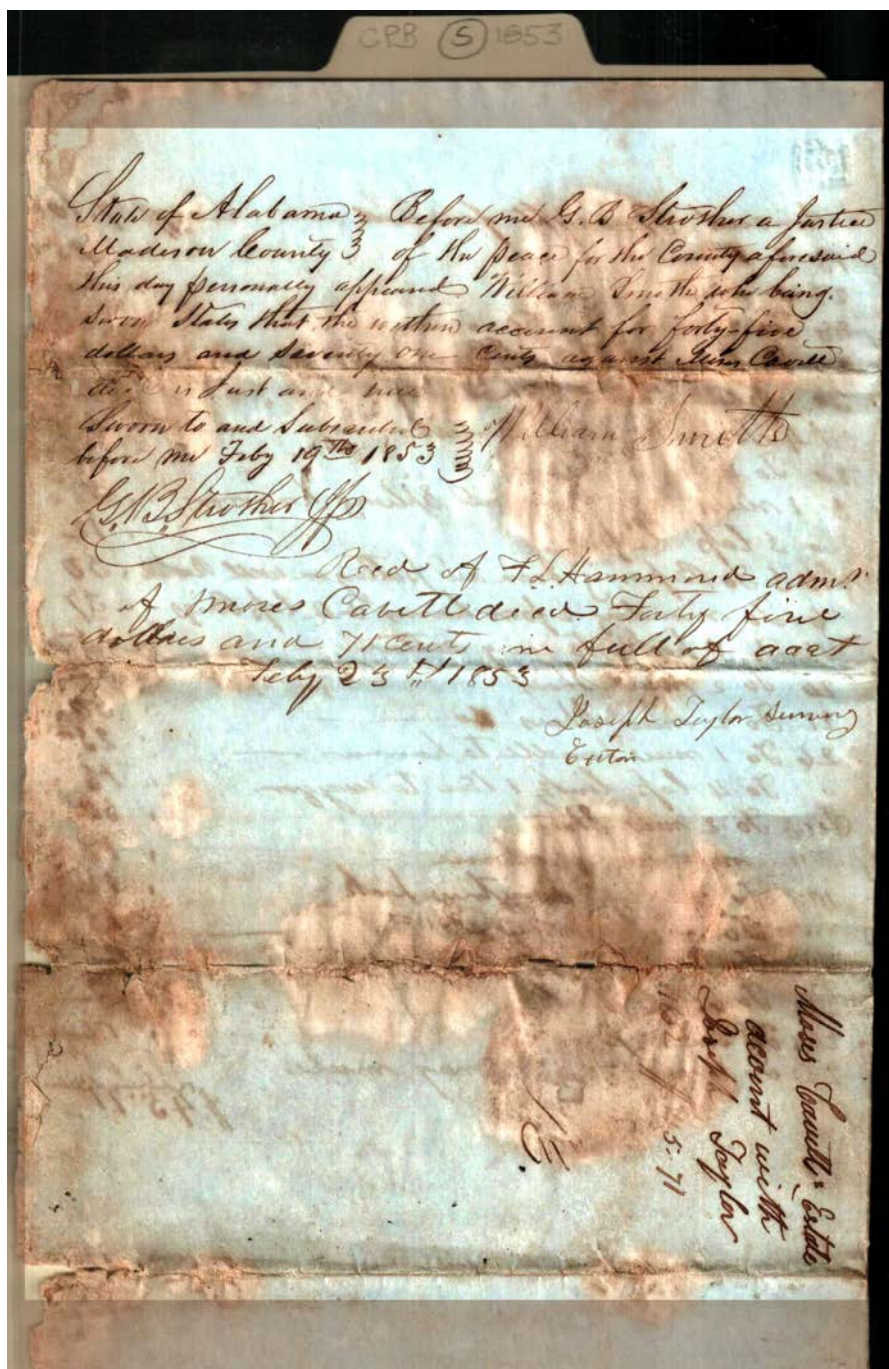 CPB (S) 1853
State of Alabama } Before me G. B Strother a Justice
Madison County } of the peace for the County aforesaid
this day personally appeared William Smith who being
Sworn States that the within account for forty-five
dollars and Seventy one Cents against Moses Cavett
decd is Just and true
Sworn to and Subscribed
before me Feby 19th 1853
William Smith
G. B. Strother JP
Recd of F. L. Hammond admr
of Moses Cavett decd Forty five
dollars and 71 cents in full of acct
Feby 23rd 1853
Joseph Taylor
Moses Cavett's Estate
account with
Joseph Taylor
5.71